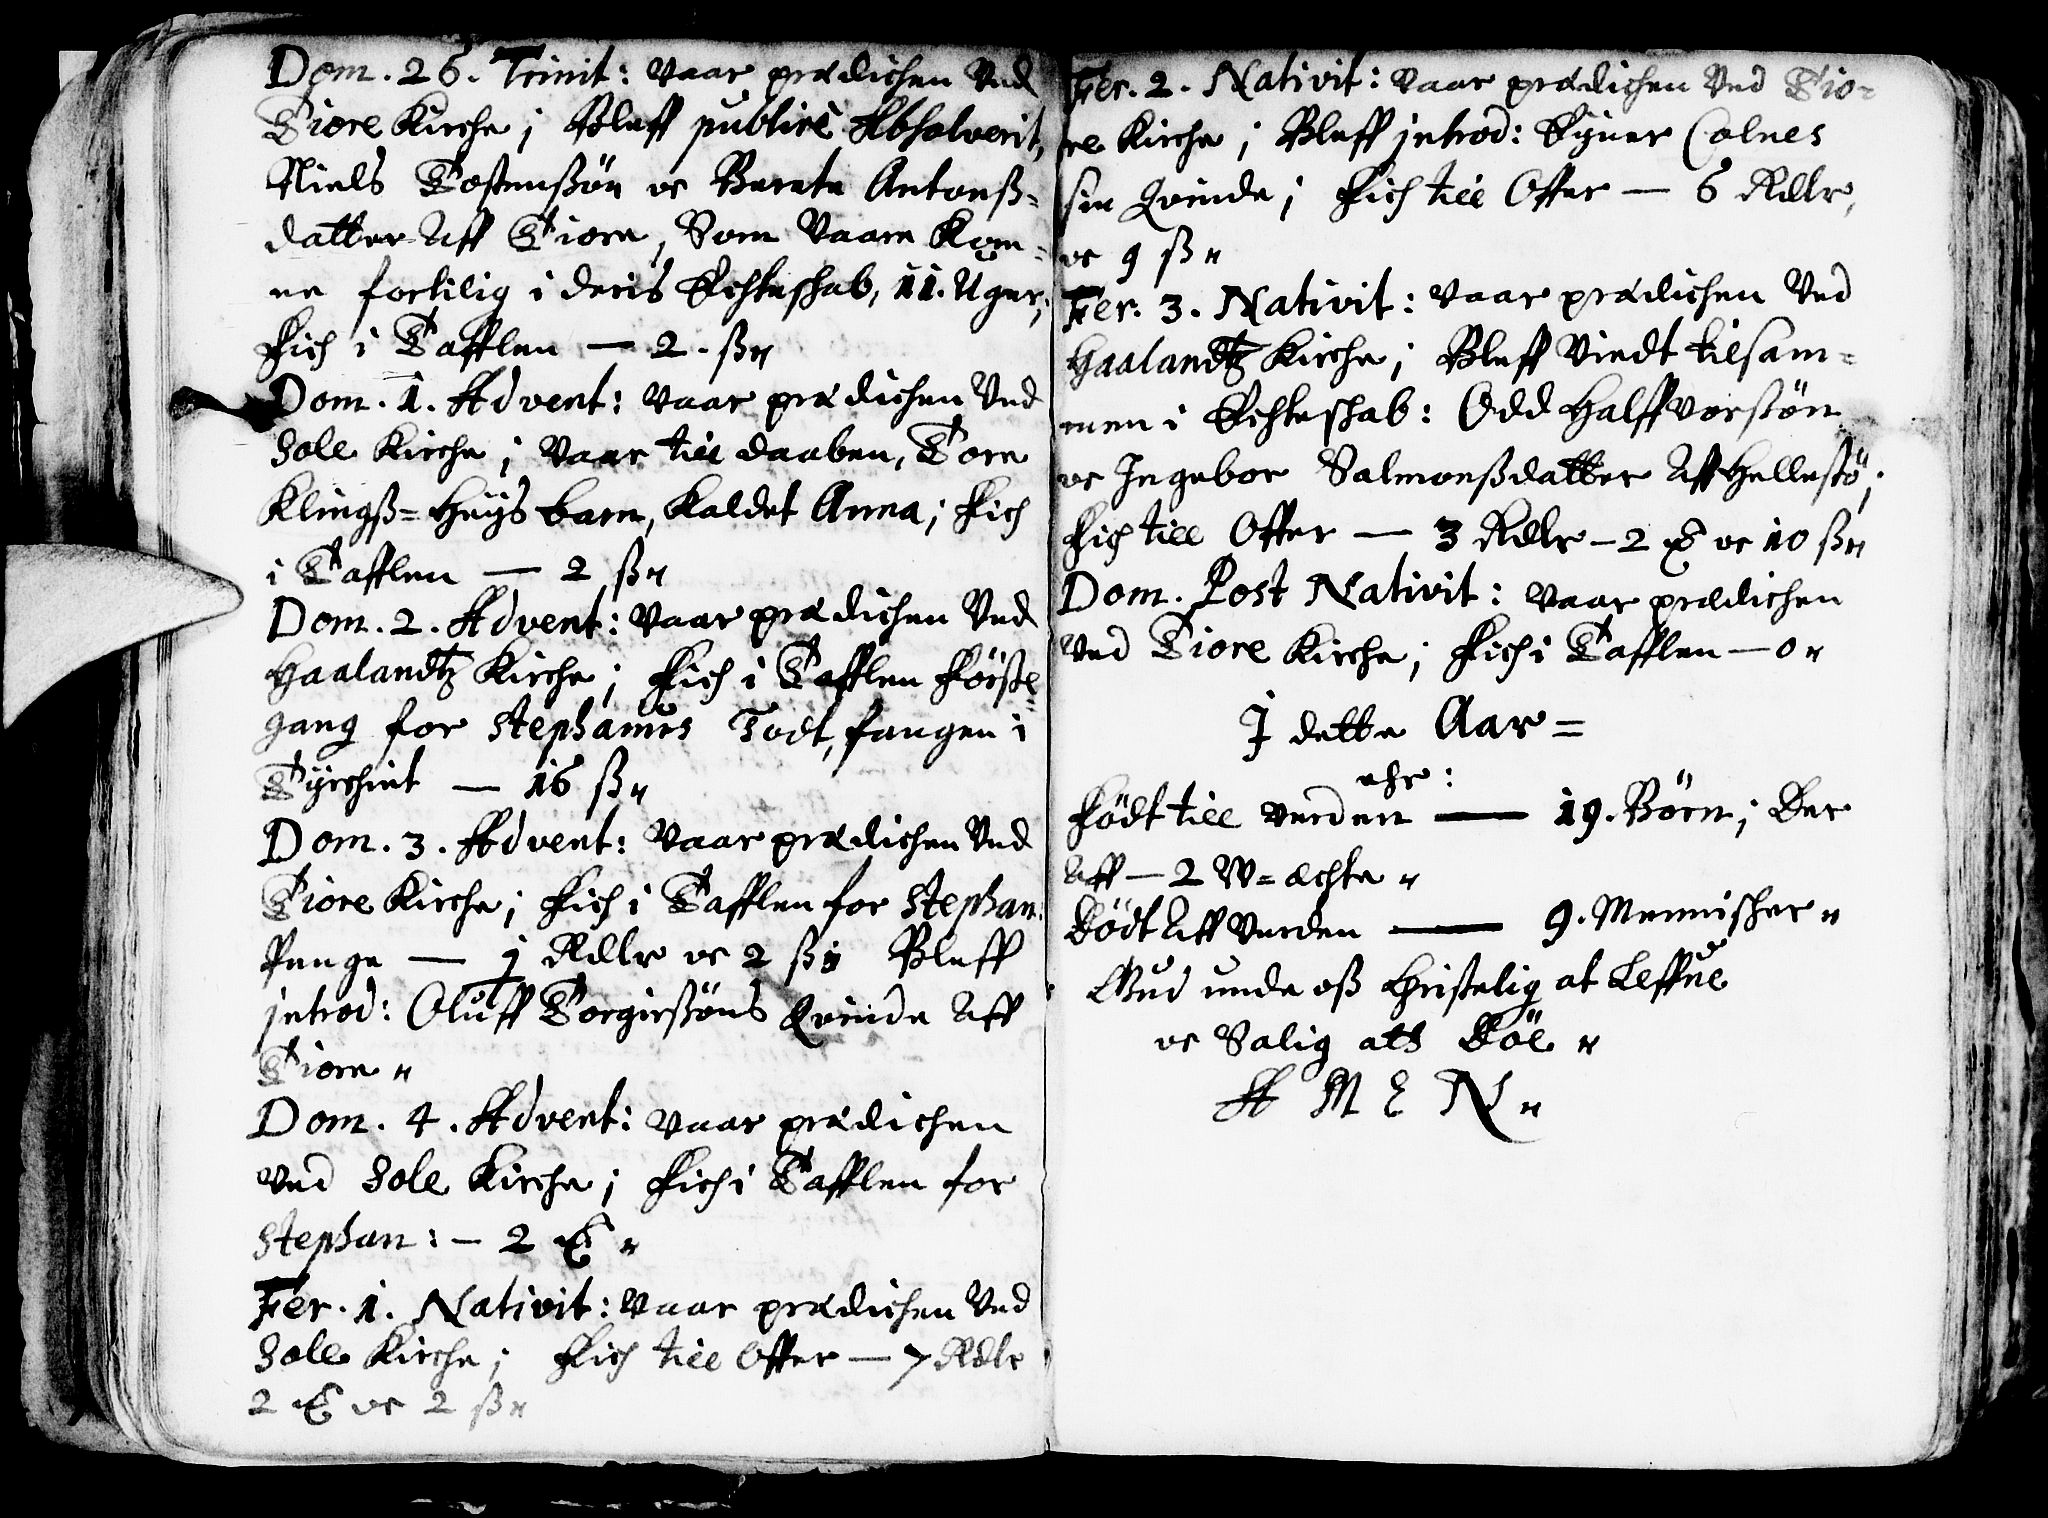 Dom. 26. Trinit: vaar prædichen Ved
Tiore Kirche; Bleff publicè Absolverit,
Niels Tostensßön oc Berete Antonß=
datter Aff Tiore, Som Vaare Kom=
ne fortilig i deris Echteschab, 11. Uger;
Fich i Tafflen — 2. ß
Dom. 1. Advent: vaar prædichen Ved
Sole Kirche; vaar till daaben, Tore
Klingß=Huÿs barn, kaldet Anna; Fich
i Tafflen — 2 ß
Dom. 2. Advent: vaar prædichen Ved
Haalandtz Kirche; Fich i Tafflen Förste
gang for Stephanus Todt, fangen i
Tÿrchiet — 16 ß
Dom. 3. Advent: Vaar prædichen Ved
Tiore Kirche; Fich i Tafflen for Stephan:
Penge — 1 Rdlr oc 2 ß; Bleff
jntrod: Oluff Torgierßöns Qvinde Aff
Tiore
Dom. 4. Advent: vaar prædichen
ved Sole Kirche; Fich i Tafflen for
Stephan: — 2
Fer. 1. Nativit: vaar prædichen Ved
Sole Kirche; Fich till Offer — 7 Rdlr
2 oc 2 ß
Fer. 2. Nativit: vaar prædichen Ved Tio=
re Kirche; Bleff jntrod: Eÿner Colnes
sin Qvinde; Fich till Offer — 6 Rdlr,
oc 9 ß
Fer. 3. Nativit: vaar prædichen Ved
Haalandtz Kirche; Bleff Viedt tilsam=
men i Echteschab: Odd Halffvorsßön
oc Ingebor Salmonsßdatter Aff Hellestö;
Fich till Offer — 3 Rdlr — 2 oc 10 ß
Dom. Post Nativit: vaar prædichen
Ved Tiore Kirche; Fich i Tafflen — 0
I dette Aar =
ehr:
Födt till verden — 19. Börn; Der
Aff — 2 W=æchte
Dödt Aff Verden — 9. Mennischer
Gud unde oß Christelig at Leffue
oc Salig att Döe
A M E N